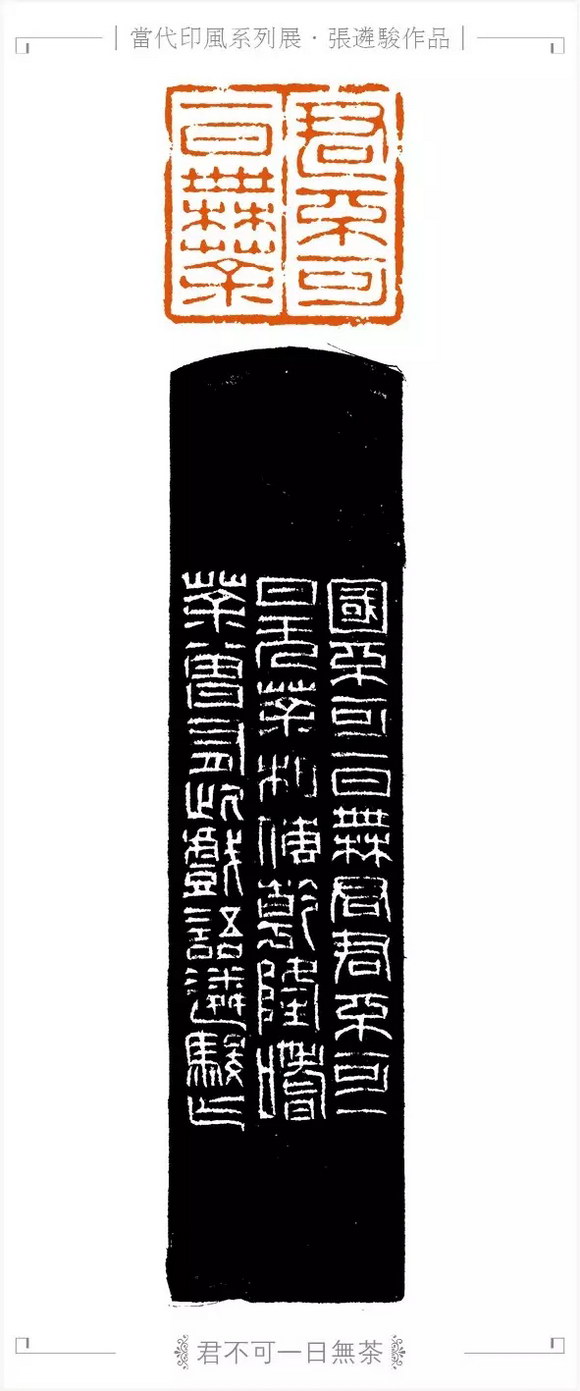 當代印風系列展·張遴駿作品
君不可
一日無茶
國不可一日無君君不可一
日无茶相傳乾隆嗜
茶曾有此戲語遴駿
君不可一日無茶